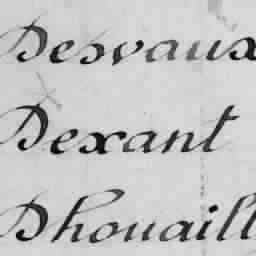 Desvaux
Dexant
Dhouaill